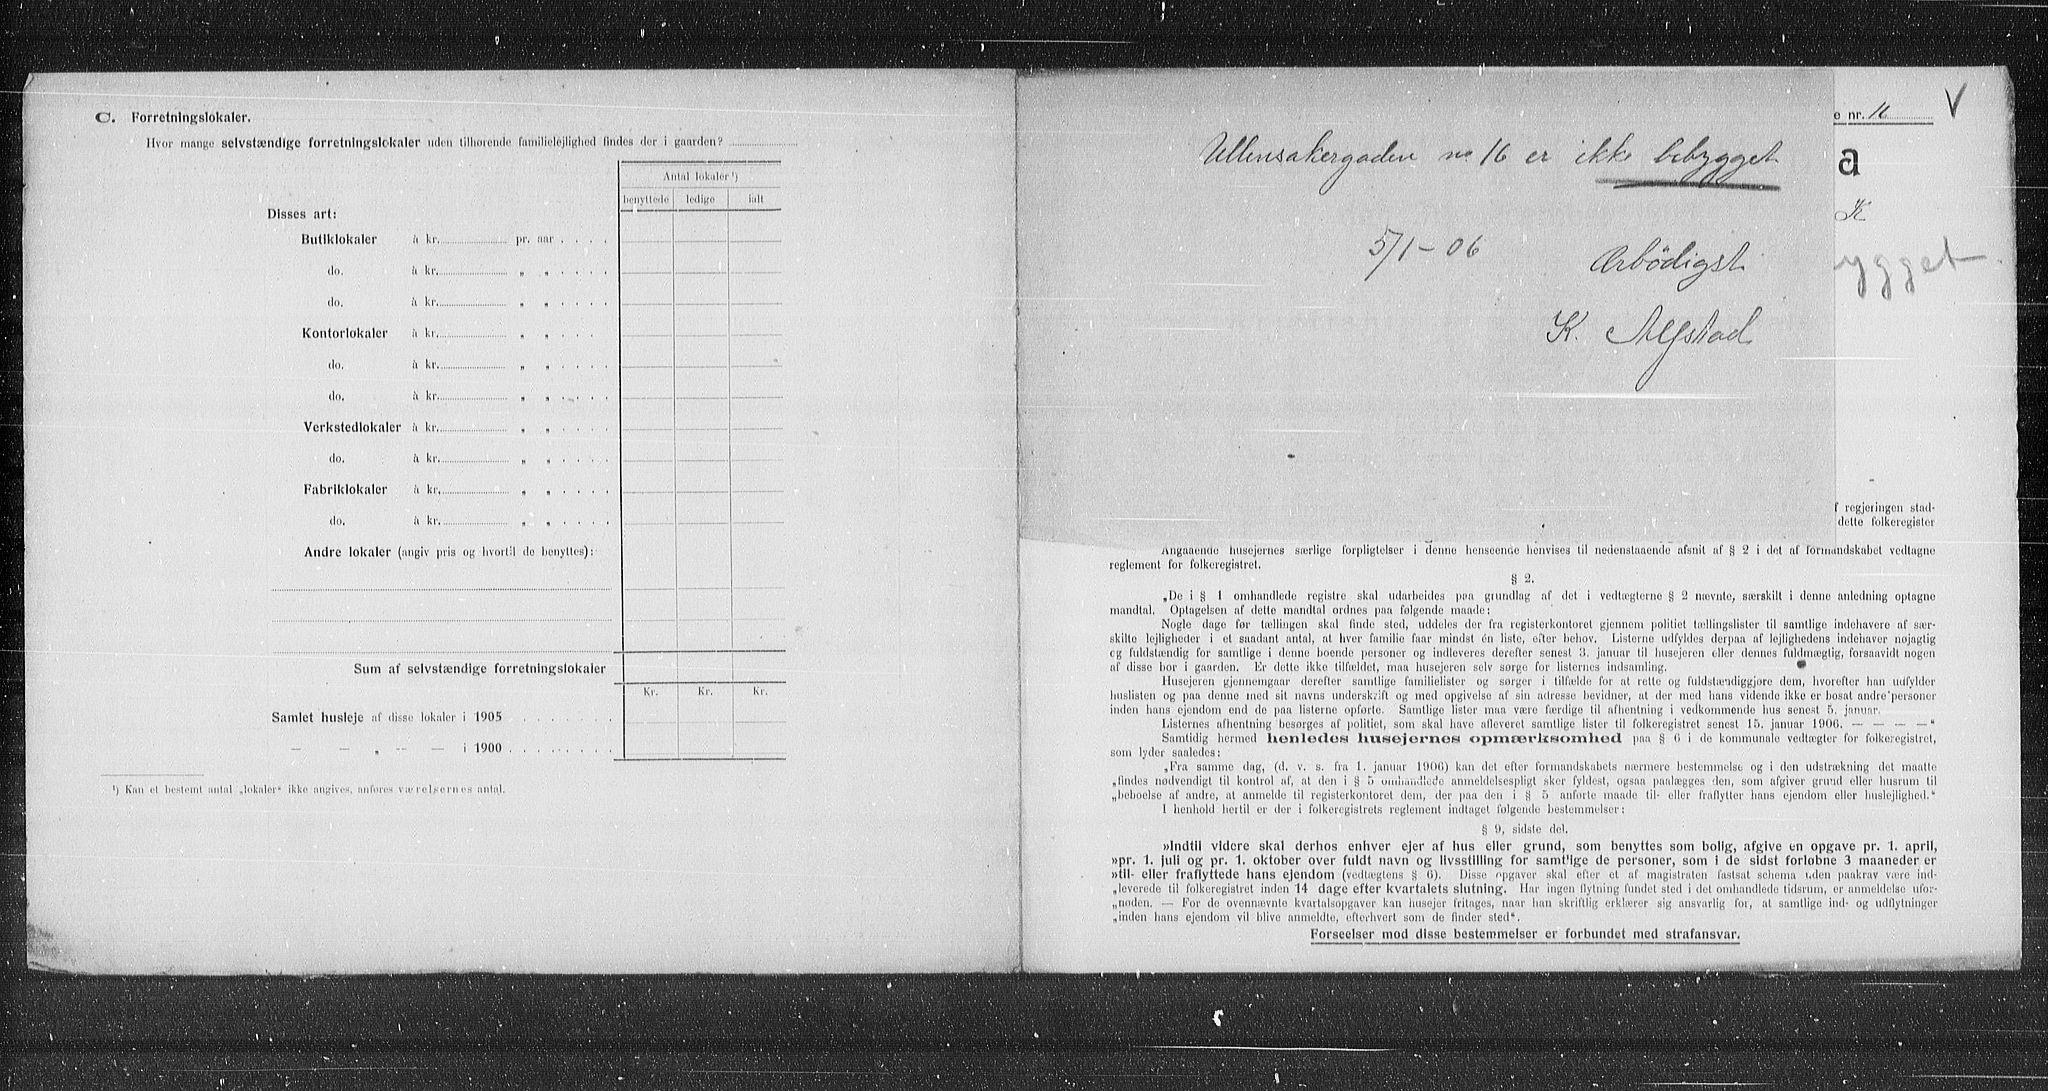 C. Forretningslokaler.
Hvor mange selvstændige forretningslokaler uden tilhørende familielejlighed findes der i gaarden?
Antal lokaler ¹)
benyttede ledige ialt
Disses art:
Butiklokaler à kr. pr. aar
do. à kr. „ „
do. à kr. „ „
Kontorlokaler à kr. „ „
do. à kr. „ „
do. à kr. „ „
Verkstedlokaler à kr. „ „
do. à kr. „ „
Fabriklokaler à kr. „ „
do. à kr. „ „
Andre lokaler (angiv pris og hvortil de benyttes):
Sum af selvstændige forretningslokaler
Kr. Kr. Kr.
Samlet husleje af disse lokaler i 1905
— — „ — — i 1900
¹) Kan et bestemt antal „lokaler“ ikke angives, anføres værelsernes antal.
e nr. 16 V
Ullensakergaden no 16 er ikke bebygget
a
K
5/1-06 Ærbødigst
ygget
K. Alfstad
f regjeringen stad-
dette folkeregister
Angaaende husejernes særlige forpligtelser i denne henseende henvises til nedenstaaende afsnit af § 2 i det af formandskabet vedtagne
reglement for folkeregistret.
§ 2.
„De i § 1 omhandlede registre skal udarbeides paa grundlag af det i vedtægterne § 2 nævnte, særskilt i denne anledning optagne
mandtal. Optagelsen af dette mandtal ordnes paa følgende maade:
Nogle dage før tællingen skal finde sted, uddeles der fra registerkontoret gjennem politiet tællingslister til samtlige indehavere af sær-
skilte lejligheder i et saadant antal, at hver familie faar mindst én liste, efter behov. Listerne udfyldes derpaa af lejlighedens indehaver nøjagtig
og fuldstændig for samtlige i denne boende personer og indleveres derefter senest 3. januar til husejeren eller dennes fuldmægtig, forsaavidt nogen
af disse bor i gaarden. Er dette ikke tilfældet, maa husejeren selv sørge for listernes indsamling.
Husejeren gjennemgaar derefter samtlige familielister og sørger i tilfælde for at rette og fuldstændiggjøre dem, hvorefter han udfylder
huslisten og paa denne med sit navns underskrift og med opgivelse af sin adresse bevidner, at der med hans vidende ikke er bosat andre personer
inden hans ejendom end de paa listerne opførte. Samtlige lister maa være færdige til afhentning i vedkommende hus senest 5. januar.
Listernes afhentning besørges af politiet, som skal have afleveret samtlige lister til folkeregistret senest 15. januar 1906. — — — —“
Samtidig hermed henledes husejernes opmærksomhed paa § 6 i de kommunale vedtægter for folkeregistret,
som lyder saaledes:
„Fra samme dag, (d. v. s. fra 1. januar 1906) kan det efter formandskabets nærmere bestemmelse og i den udstrækning det maatte
„findes nødvendigt til kontrol af, at den i § 5 omhandlede anmeldelsespligt sker fyldest, ogsaa paalægges den, som afgiver grund eller husrum til
„beboelse af andre, at anmelde til registerkontoret dem, der paa den i § 5 anførte maade til- eller fraflytter hans ejendom eller huslejlighed.“
I henhold hertil er der i folkeregistrets reglement indtaget følgende bestemmelser:
§ 9, sidste del.
»Indtil videre skal derhos enhver ejer af hus eller grund, som benyttes som bolig, afgive en opgave pr. 1. april,
»pr. 1. juli og pr. 1. oktober over fuldt navn og livsstilling for samtlige de personer, som i de sidst forløbne 3 maaneder er
»til- eller fraflyttede hans ejendom (vedtægtens § 6). Disse opgaver skal efter et af magistraten fastsat schema uden paakrav være ind-
„leverede til folkeregistret inden 14 dage efter kvartalets slutning. Har ingen flytning fundet sted i det omhandlede tidsrum, er anmeldelse ufor-
„nøden. — For de ovennævnte kvartalsopgaver kan husejer fritages, naar han skriftlig erklærer sig ansvarlig for, at samtlige ind- og udflytninger
„inden hans ejendom vil blive anmeldte, efterhvert som de finder sted“.
Forseelser mod disse bestemmelser er forbundet med strafansvar.